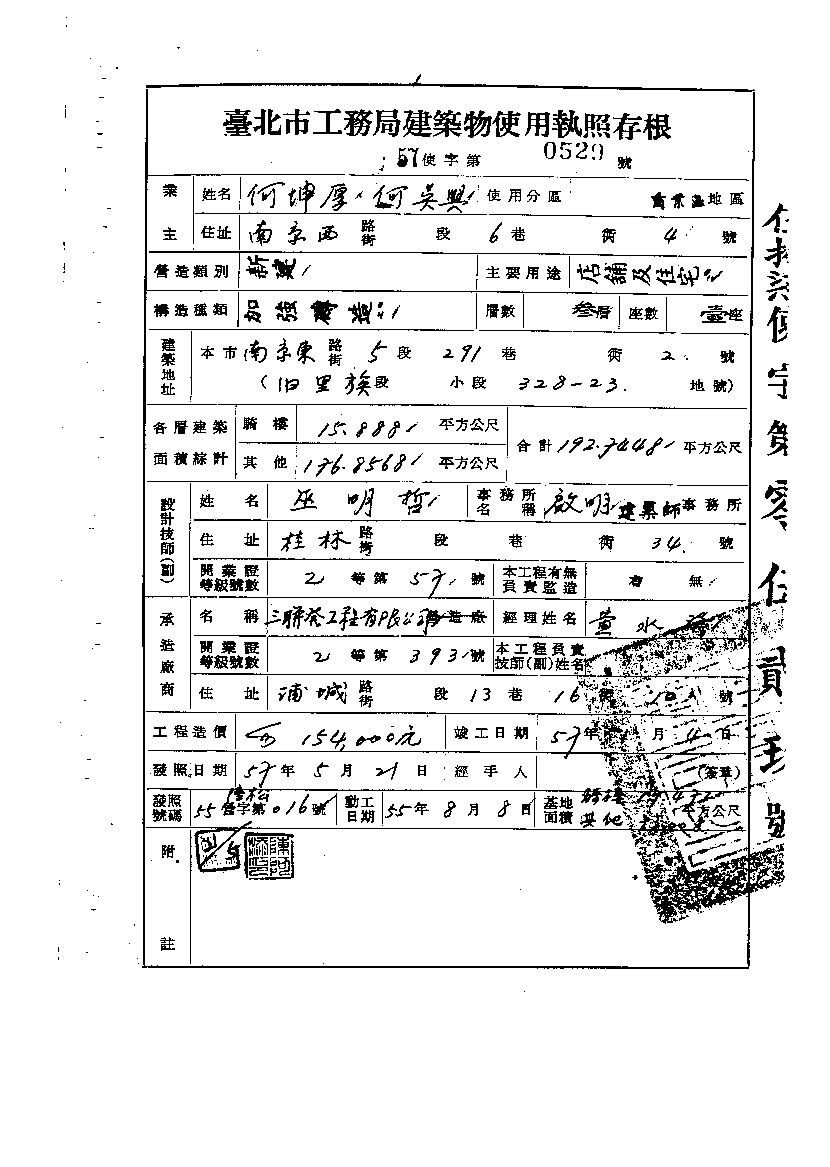 臺北市工務局建築物使用執照存根
57使字第 0529 號
業主 姓名 何坤厚、何吳興 使用分區 商業區地區
住址 南京西 路街 段 6巷 衖 4 號
營造類別 新建 主要用途 店舖及住宅
構造種類 加強磚造 層數 叁層 座數 壹座
建築地址 本市南京東 路街 5段 291巷 衖 2 號
(旧里族段 小段 328-23. 地號)
各層建築面積綜計 騎樓 15.888 平方公尺 合計 192.7448 平方公尺
其他 176.8568 平方公尺
設計技師(副) 姓名 巫明哲 事務所名稱 啟明建築師事務所
住址 桂林 路街 段 巷 衖 34. 號
開業證等級號數 2 等第 57 號 本工程有無負責監造 有 無
承造廠商 名稱 三聯發工程有限公司營造廠 經理姓名 黃水
開業證等級號數 2 等第 393 號 本工程負責技師(副)姓名
住址 浦城 路街 段 13巷 16 號
工程造價 154,000元 竣工日期 57年 月 4日
發照日期 57年5月21日 經手人 (簽章)
發照號碼 55營字第016號 動工日期 55年8月8日 基地面積 騎樓 其他 平方公尺
附註
使字第零伍貳玖號